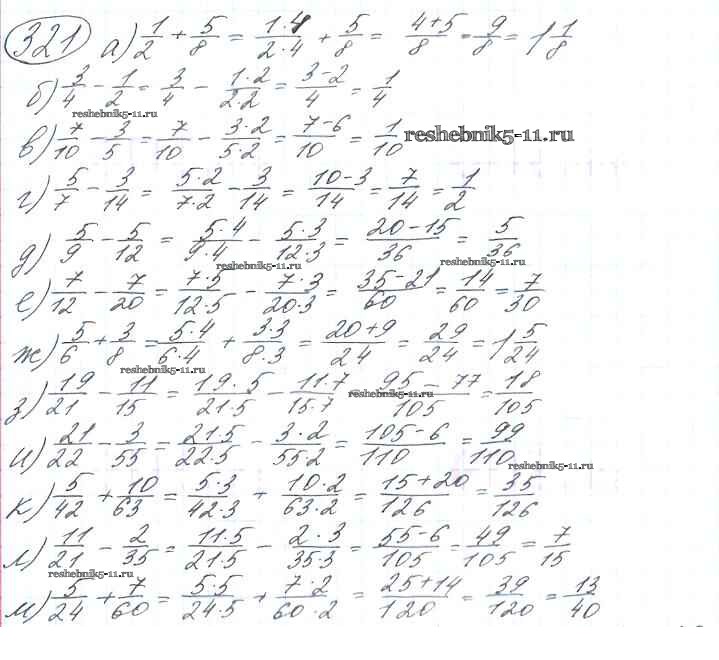 321 а) 1/2 + 5/8 = 1·4/2·4 + 5/8 = 4+5/8 = 9/8 = 1 1/8
б) 3/4 - 1/2 = 3/4 - 1·2/2·2 = 3-2/4 = 1/4
reshebnik5-11.ru
в) 7/10 - 3/5 = 7/10 - 3·2/5·2 = 7-6/10 = 1/10 reshebnik5-11.ru
г) 5/7 - 3/14 = 5·2/7·2 - 3/14 = 10-3/14 = 7/14 = 1/2
д) 5/9 - 5/12 = 5·4/9·4 - 5·3/12·3 = 20-15/36 = 5/36
reshebnik5-11.ru reshebnik5-11.ru
е) 7/12 - 7/20 = 7·5/12·5 - 7·3/20·3 = 35-21/60 = 14/60 = 7/30
ж) 5/6 + 3/8 = 5·4/6·4 + 3·3/8·3 = 20+9/24 = 29/24 = 1 5/24
reshebnik5-11.ru
з) 19/21 - 11/15 = 19·5/21·5 - 11·7/15·7 = 95-77/105 = 18/105
reshebnik5-11.ru
и) 21/22 - 3/55 = 21·5/22·5 - 3·2/55·2 = 105-6/110 = 99/110
reshebnik5-11.ru
к) 5/42 + 10/63 = 5·3/42·3 + 10·2/63·2 = 15+20/126 = 35/126
л) 11/21 - 2/35 = 11·5/21·5 - 2·3/35·3 = 55-6/105 = 49/105 = 7/15
reshebnik5-11.ru
м) 5/24 + 7/60 = 5·5/24·5 + 7·2/60·2 = 25+14/120 = 39/120 = 13/40